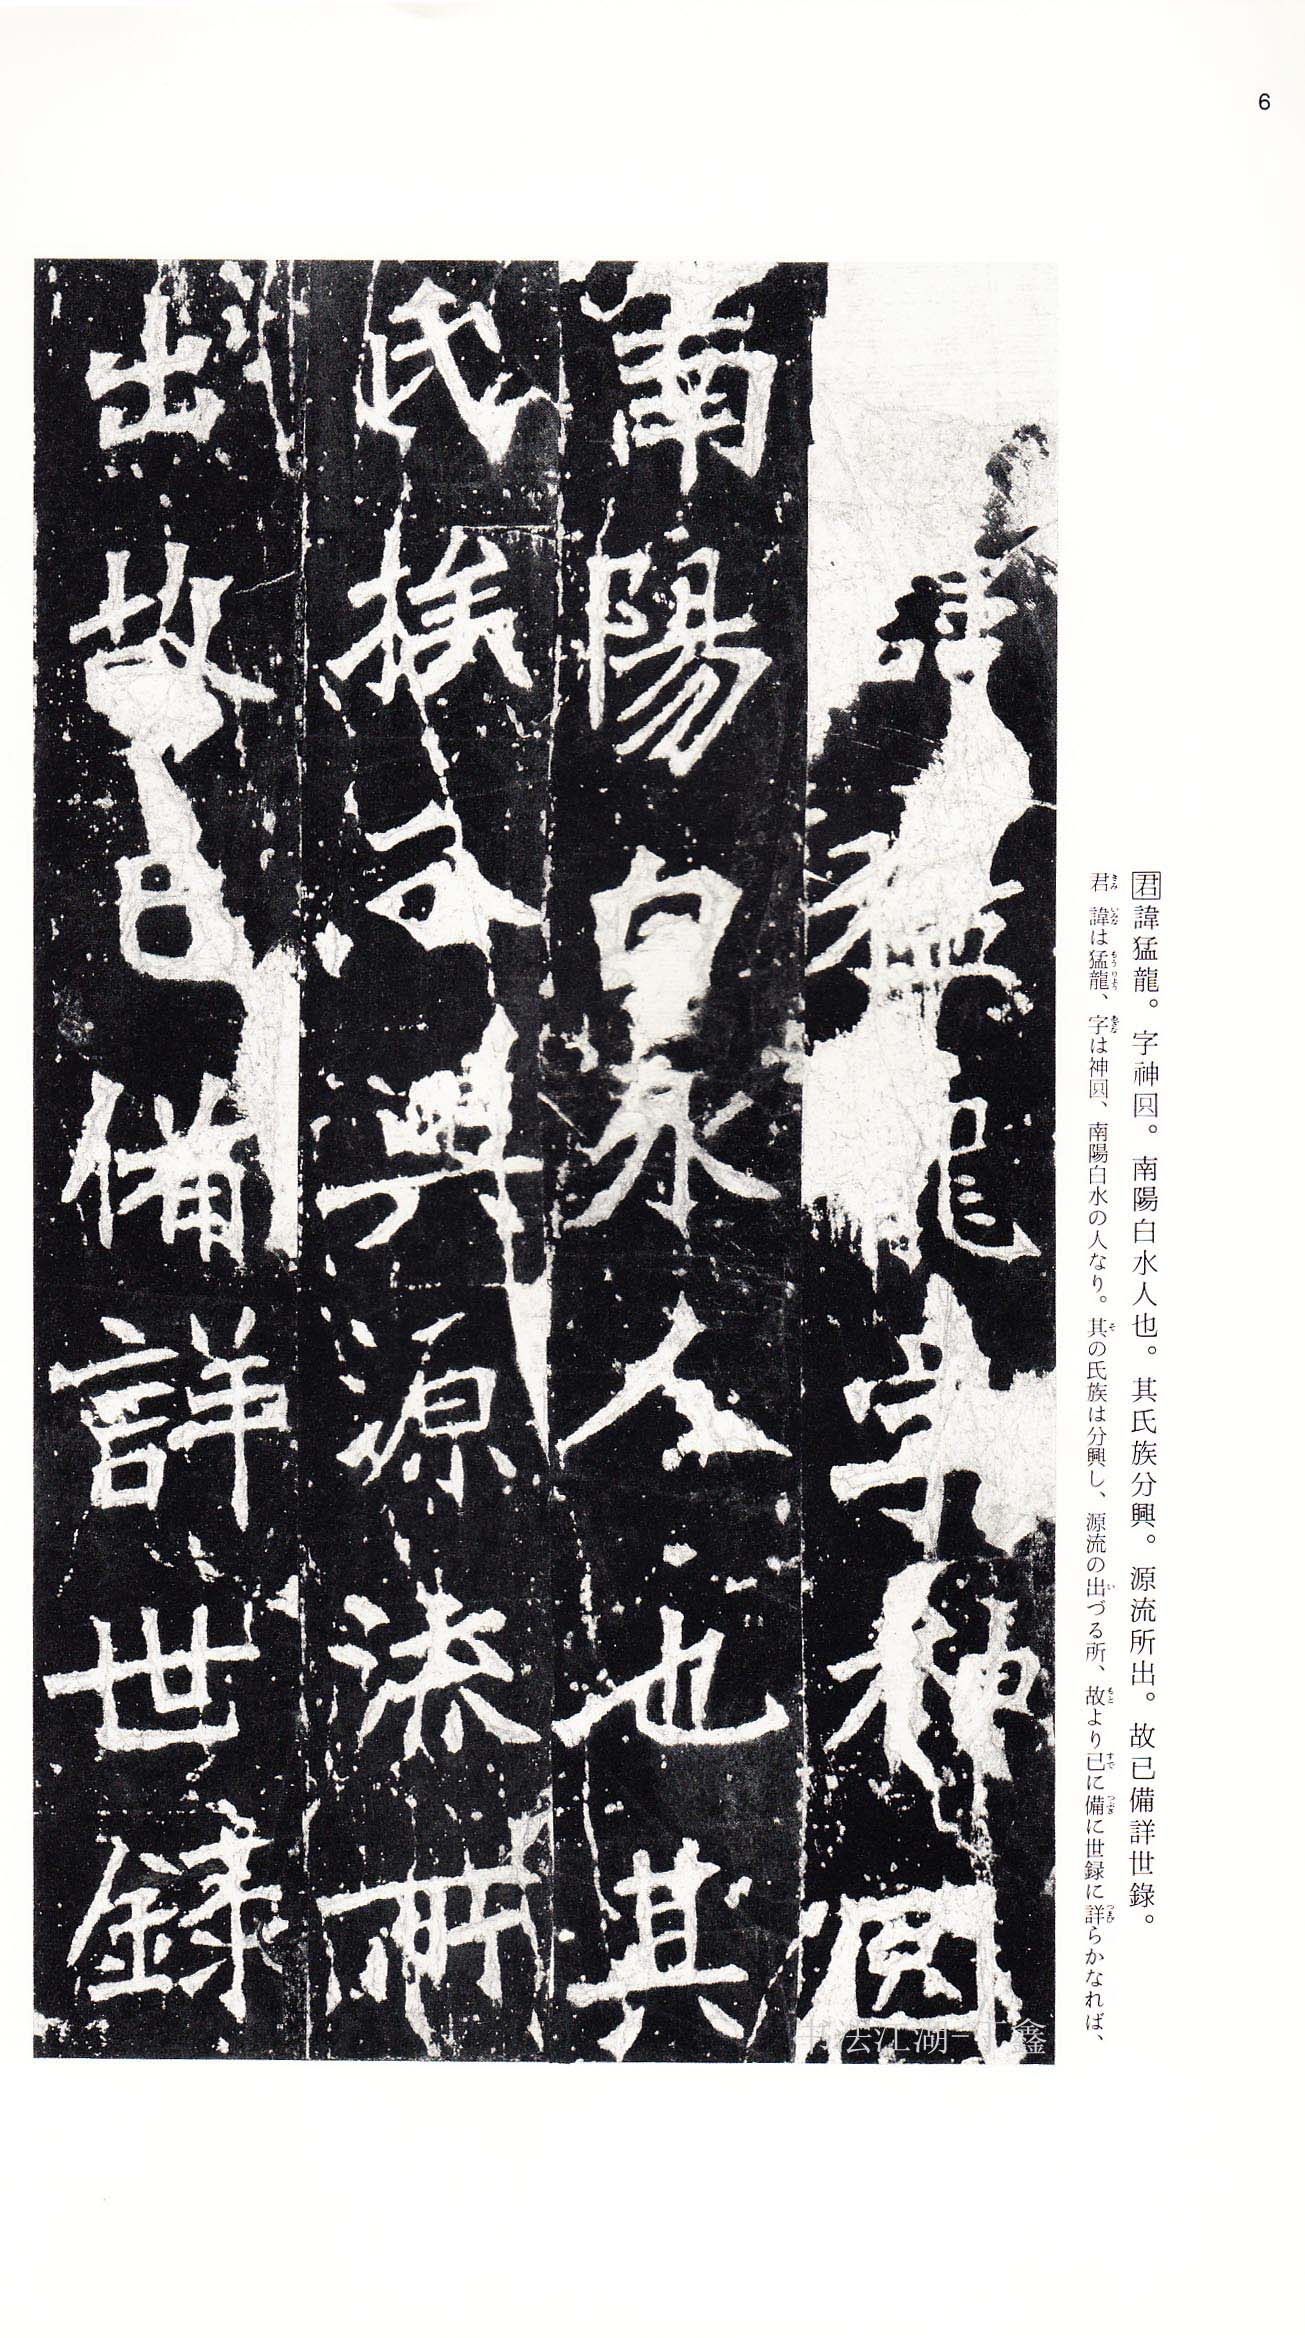 6
君諱猛龍。字神囧。南陽白水人也。其氏族分興。源流所出。故已備詳世錄。
君諱は猛龍、字は神囧、南陽白水の人なり。其の氏族は分興し、源流の出づる所、故より已に備に世録に詳らかなれば、
諱猛龍字神囧
南陽白水人也其
氏族分興源流所
出故已備詳世錄
书法江湖-丁鑫